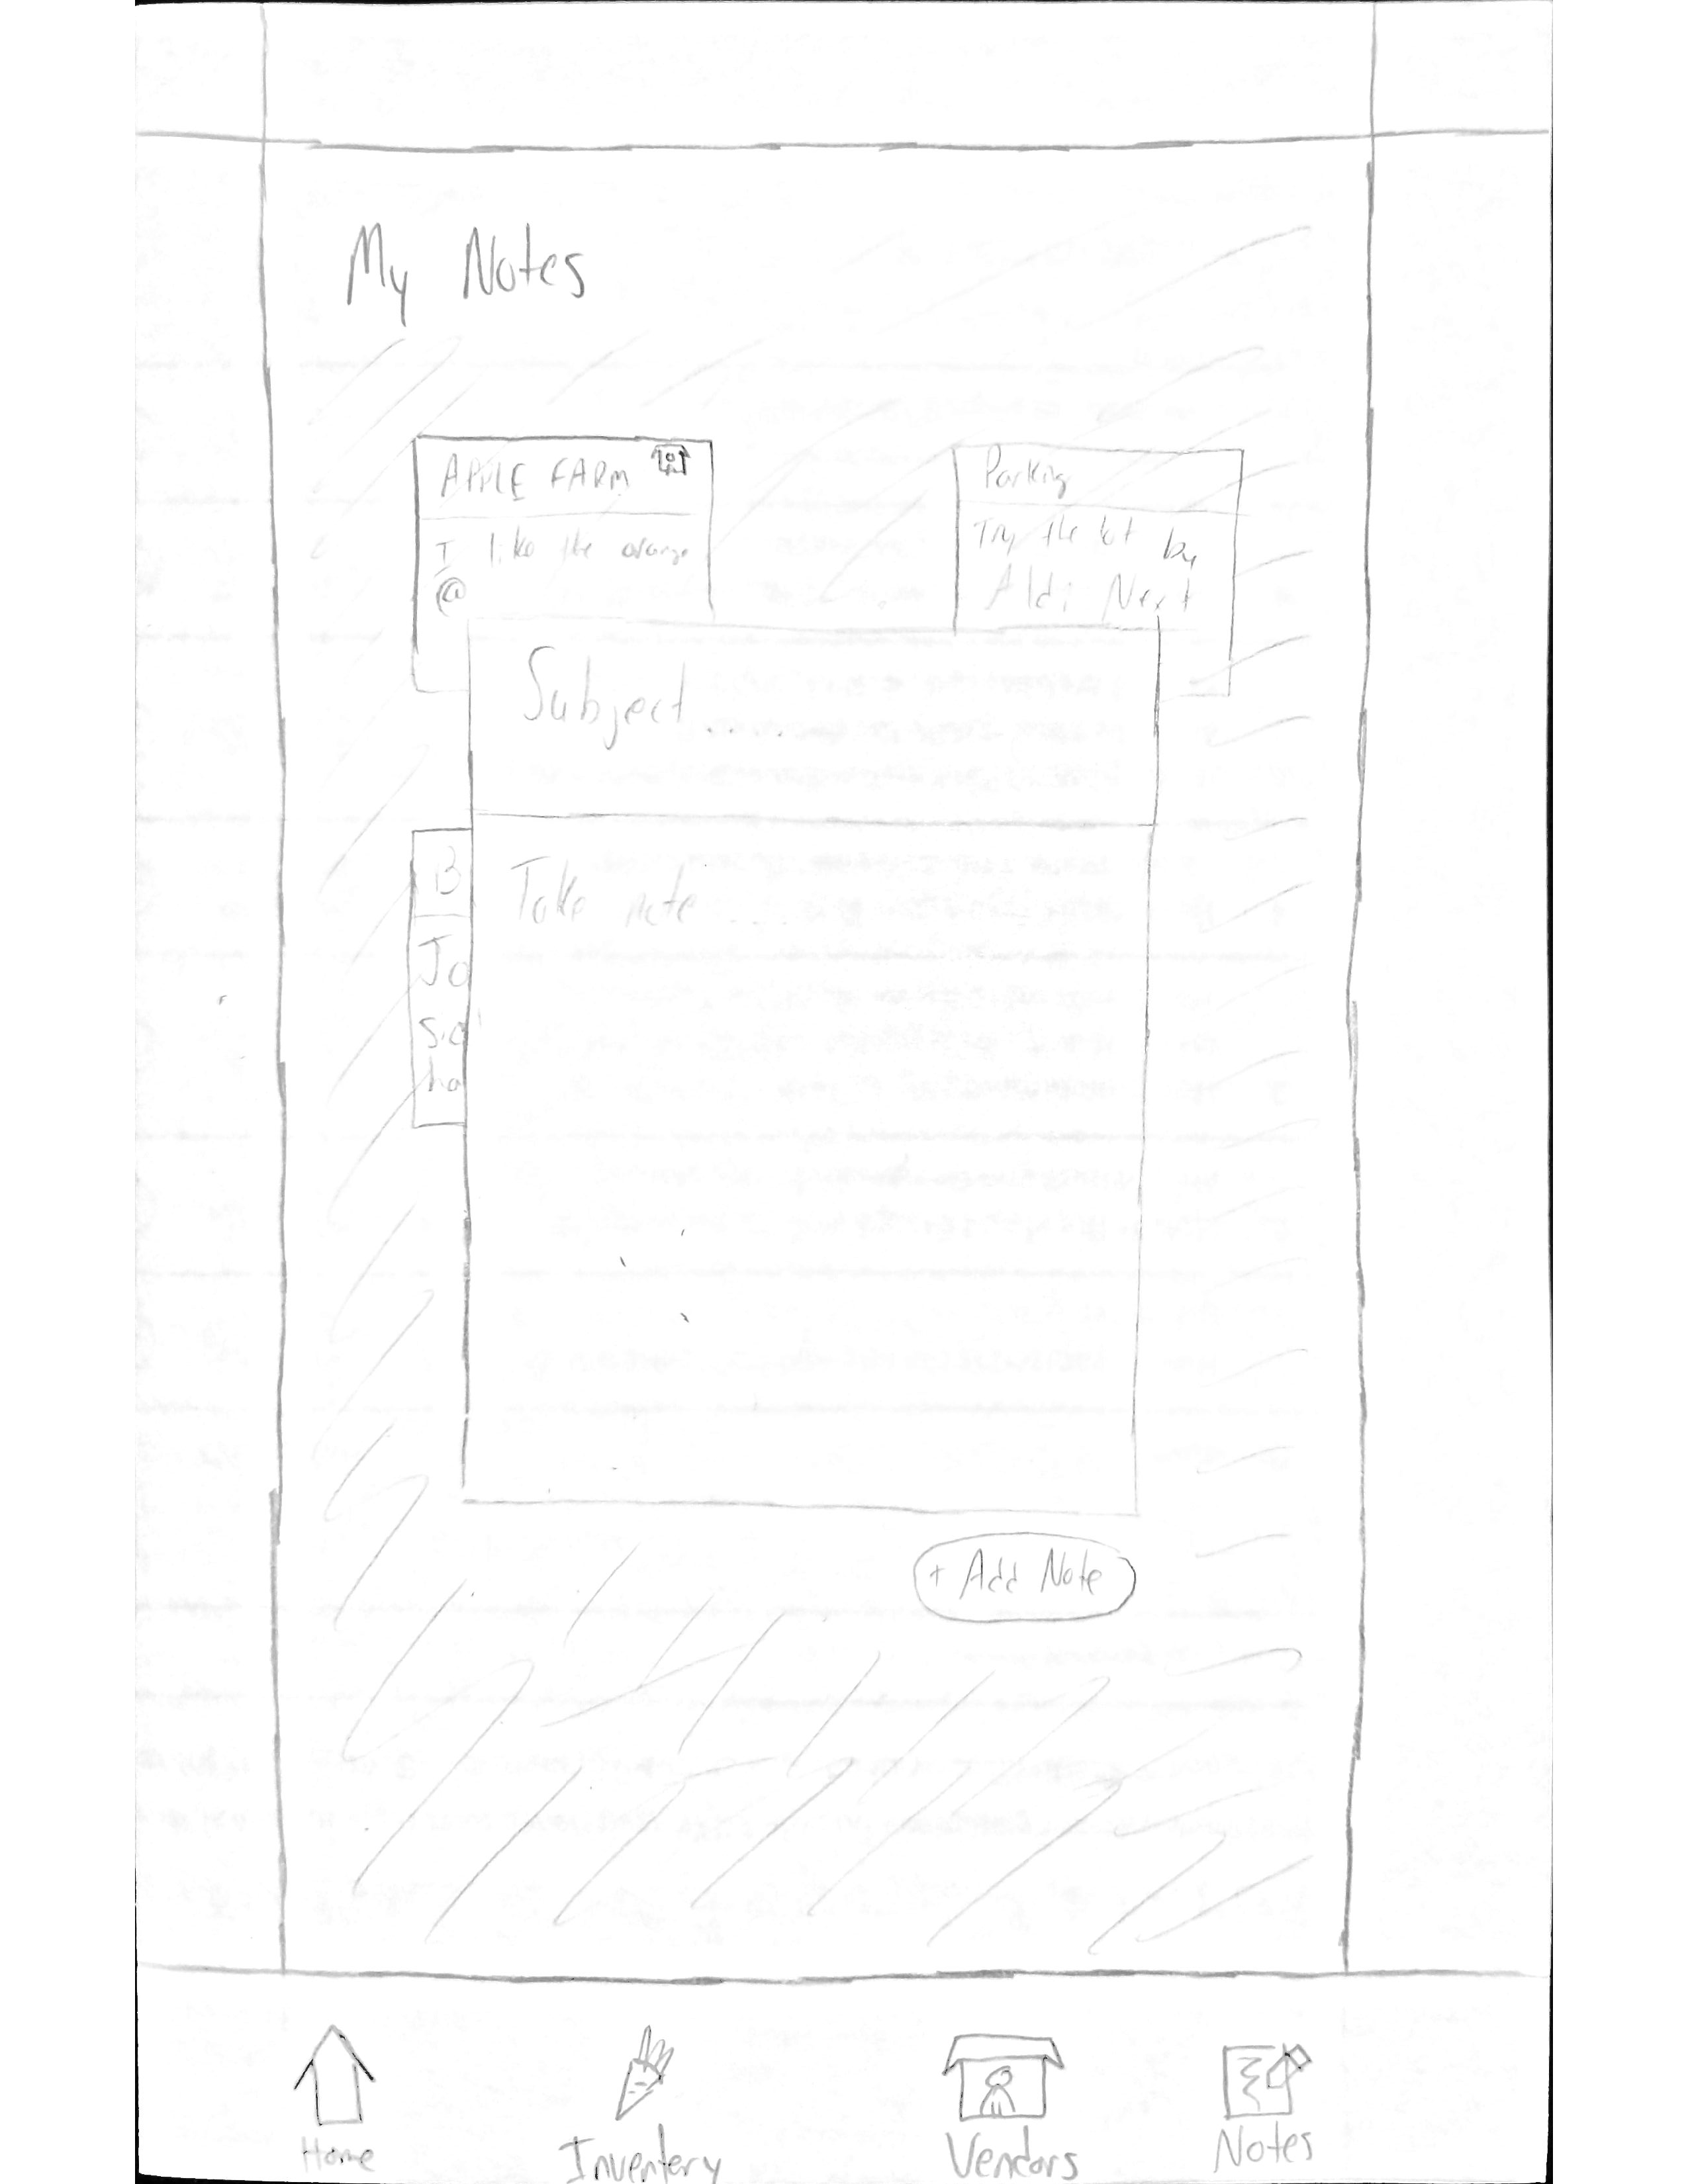 My Notes
APPLE FARM
I like the orange
@
Parking
Try the lot by
Aldi Next
Subject....
Take note....
B
Jo
ha
+ Add Note
Home
Inventory
Vendors
Notes